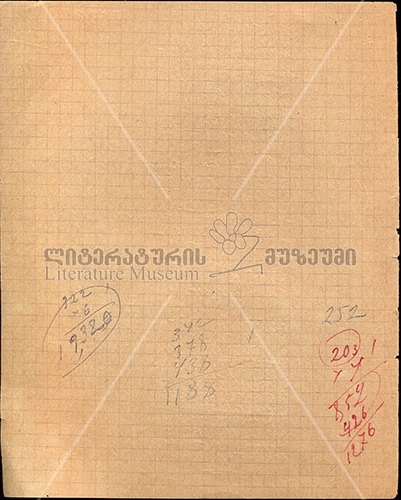 ლიტერატურის მუზეუმი
Literature Museum
322
×6
19320
252
342
378
436
1188
1
203
852
426
1276